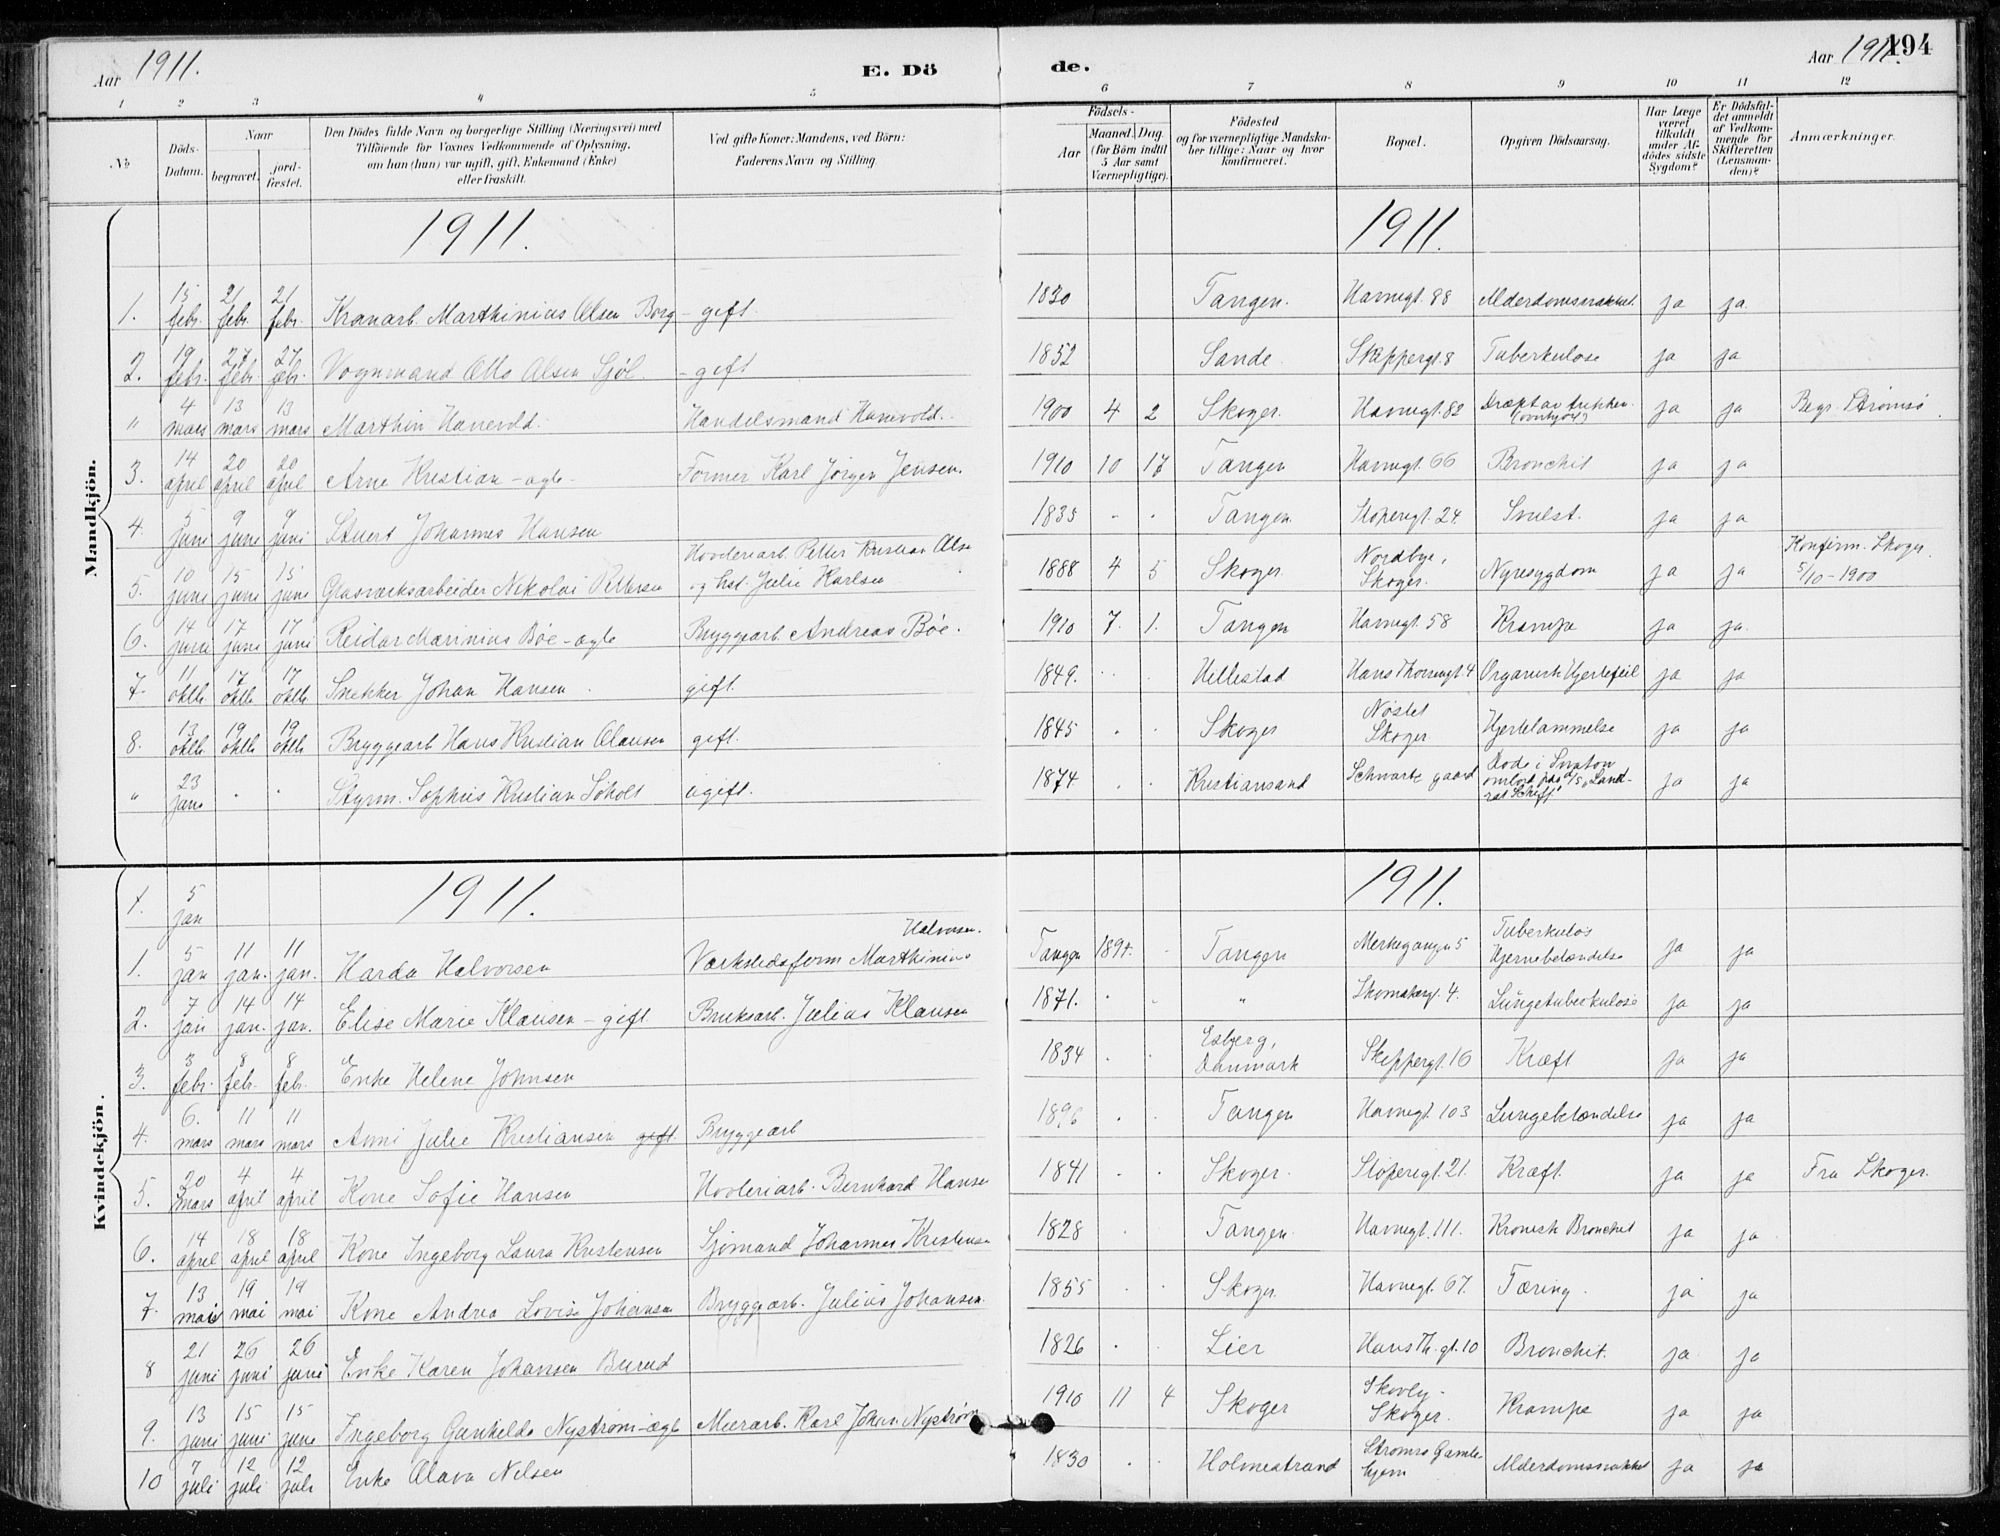 Aar 1911.
E. Dö
de.
Aar 1911.
194
1 2 3 4 5 6 7 8 9 10 11 12
№
Döds-Datum.
Naar
begravet.
jord-fæstet.
Den Dödes fulde Navn og borgerlige Stilling (Næringsvei) med
Tilföiende for Voxnes Vedkommende af Oplysning,
om han (hun) var ugift, gift, Enkemand (Enke)
eller fraskilt.
Ved gifte Koner: Mandens, ved Börn:
Faderens Navn og Stilling.
Födsels-
Aar
Maaned. Dag.
(for Börn indtil
5 Aar samt
Værnepligtige).
Födested
og for værnepligtige Mandska-
ber tillige: Naar og hvor
konfirmeret.
Bopæl.
Opgiven Dödsaarsag.
Har Læge
været
tilkaldt
under Af-
dödes sidste
Sygdom?
Er Dödsfal-
det anmeldt
af Vedkom-
mende for
Skifteretten
(Lensman-
den)?
Anmærkninger.
Mandkjön.
1911. 1911.
1. 15 febr. 21 febr. 21 febr. Kranarb. Marthinius Olsen Borg - gift. 1830 Tangen. Havnegt. 88 Alderdomssvakhet ja ja.
2. 19 febr. 27 febr. 27 febr. Vognmand Otto Olsen Sjøl - gift 1852 Sande. Skippergt. 8 Tuberkulose ja ja
" 4 mars 13 mars 13 mars Marthin Hanevold. Handelsmand Hanevold. 1900 4 2 Skoger. Havnegt. 82 Dræpt av trikken. (overkjørt) ja ja Begr. Strømsø.
3. 14 april 20 april 20 april Arne Kristian - ægte - Former Karl Jørgen Jensen. 1910 10 17 Tangen Havnegt. 66 Bronchit ja ja
4. 5 juni 9 juni 9 juni Stuert Johannes Hansen 1835 Tangen Støperigt. 24. Svulst. ja ja
5. 10 juni 15 juni 15 juni Glasværksarbeider Nikolai Pettersen Hovleriarb. Petter Kristian Olsen og hst. Julie Karlsen 1888 4 5 Skoger Nordbye, Skoger. Nyresygdom ja ja Konfirm. Skoger. 5/10-1900
6. 14 juni 17 juni 17 juni Reidar Marinius Bøe - ægte Bryggearb Andreas Bøe. 1910 7. 1. Tangen Havnegt. 58 Krampe ja ja.
7. 11 oktb 17 oktb 17 oktb Snekker Johan Hansen. gift. 1849. Hillestad Hans Thornsgt 4 Organisk Hjertefeil ja ja
8. 13 oktb 19 oktb 19 oktb Bryggearb Hans Kristian Olausen gift. 1845 Skoger Nøstet Skoger Hjertelammelse ja ja
" 23 janr " " Styrm. Sophus Kristian Søholt ugift. 1874. Kristiansand Schwartz gaard Døde i ombord paa d/s "Landrat Schiff" ja ja
Kvindekjön.
1. 5 jan 1911. 1911.
1. 5 jan 11 jan. 11 jan. Harda Halvorsen Værkstedsform Marthinius Halvorsen. Tangen 1894. Tangen Merkegangen 5 Tuberkuløs Hjernebetændelse ja ja
2. 7 jan 14 jan. 14 jan. Elise Marie Klausen - gift. Bruksarb. Julius Klausen 1871. " Skomakergt. 4. Lungetuberkulose ja ja
3. 3 febr. 8 febr. 8 febr. Enke Helene Johnsen 1834 Esbjerg, Danmark Skippergt. 16 Kræft ja ja
4. 6. mars 11 mars 11 mars Anni Julie Kristiansen gift. Bryggearb 1896 Tangen Havnegt. 103 Lungebetændelse ja ja
5. 20 mars 4 april 4 april Kone Sofie Hansen Hovleriarb. Bernhard Hansen 1841 Skoger. Støperigt. 21. Kræft. ja ja Fra Skoger.
6. 14 april 18 april 18 april Kone Ingeborg Laura Kristensen Sjømand Johannes Kristensen 1828 Tangen. Havnegt. 111. Kronisk Bronchit ja ja
7. 13 mai 19 mai 19 mai Kone Andrea Lovise Johansen Bryggearb. Julius Johansen. 1855 Skoger. Havnegt. 67. Tæring. ja ja
8 21 juni 26 juni 26 juni Enke Karen Johansen Burud 1826 Lier Hans Th. gt. 10 Bronchit. ja ja
9. 13 juni 15 juni 15 juni Ingeborg Gunhilda Nystrøm - ægte Murarb. Karl Johan Nystrøm 1910 11 4 Skoger Skovly - Skoger. Krampe ja ja
10 7 juli 12 juli 12 juli Enke Olava Nilsen 1830 Holmestrand Strømsø Gamlehjem Alderdomssvakhet ja ja